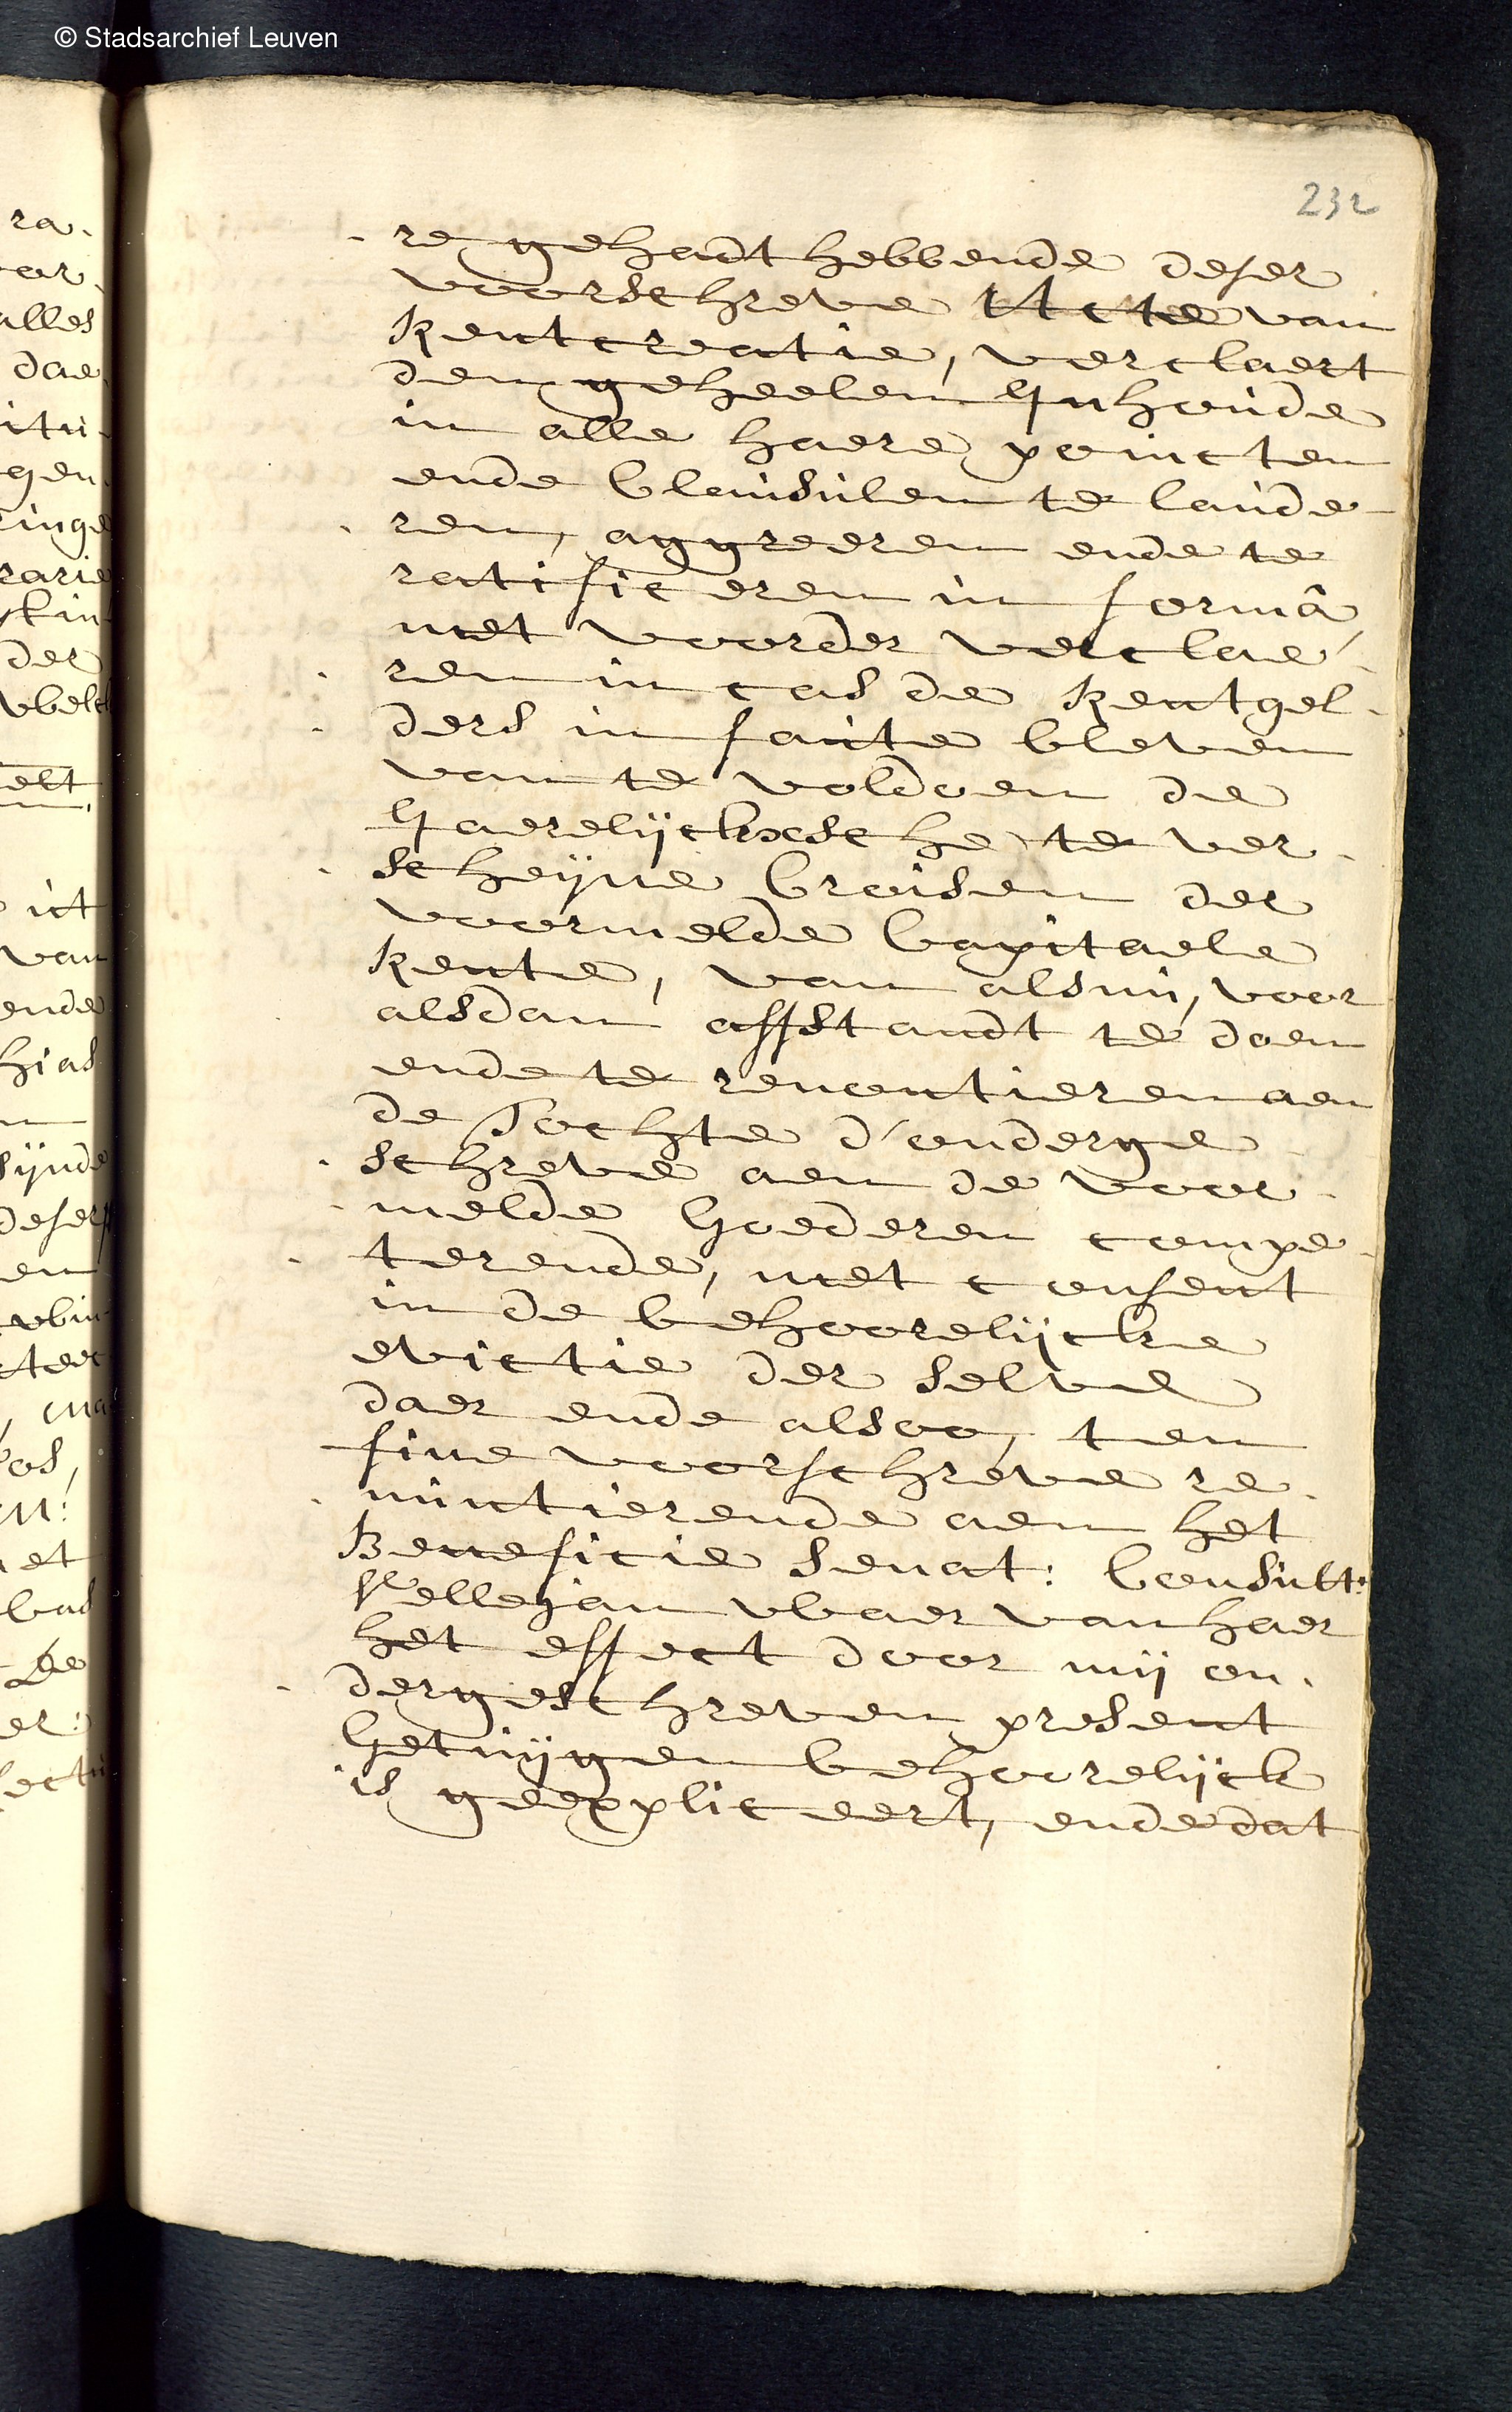 © Stadsarchief Leuven
232
re gehadt hebbende deser
voorschreve Acte van
Rentcreatie, verclaert
den geheelen Inhoude
in alle haere poincten
ende Clausulen te laude
ren, aggreeren ende te
ratificeren in formâ,
met voorder verclae
ren in cas de Rentgel
ders in faute bleven
van te voldoen de
Jaerelijcksche te ver
scheyne Croisen der
voormelde Capitaele
Rente, van alsnu, voor
alsdan affstandt te doen
ende te renontieren aen
de Tochte d'onderge
schreve aen de voor
melde Goederen compe
terende, met consent
in de behoorelijcke
evictie der selve
daer ende alsoo, ten
fine voorschreve re
nuntierende aen het
Beneficie Senat: Consult:
Vellejan waer van haer
het effect door mij on
dergeschreven present
Getuijgen behoorelijck
is geexpliceert, ende dat